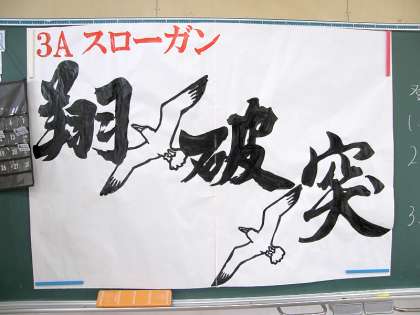 3A スローガン
翔破突
1
2
3.